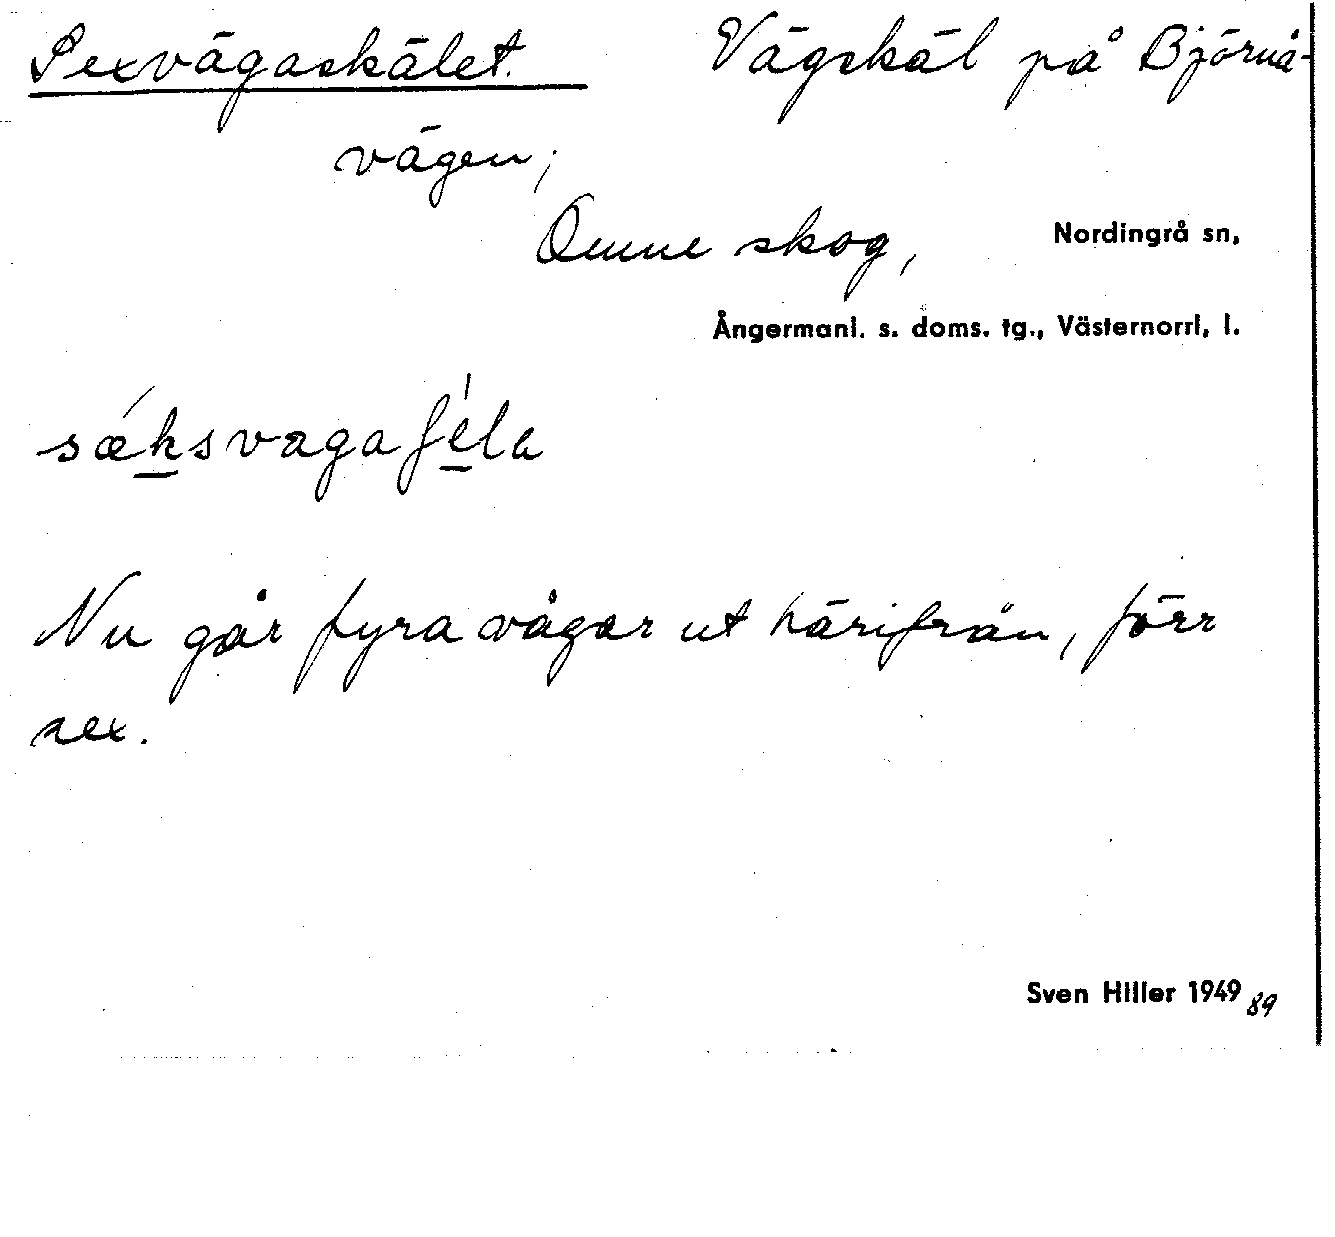 Sexvägaskälet. Vägskäl på Björnå-
vägen;
Omne skog, Nordingrå sn,
Ångermanl. s. doms. tg., Västernorrl. l.
Nu går fyra vägar ut härifrån, förr
sex.
Sven Hiller 1949 89